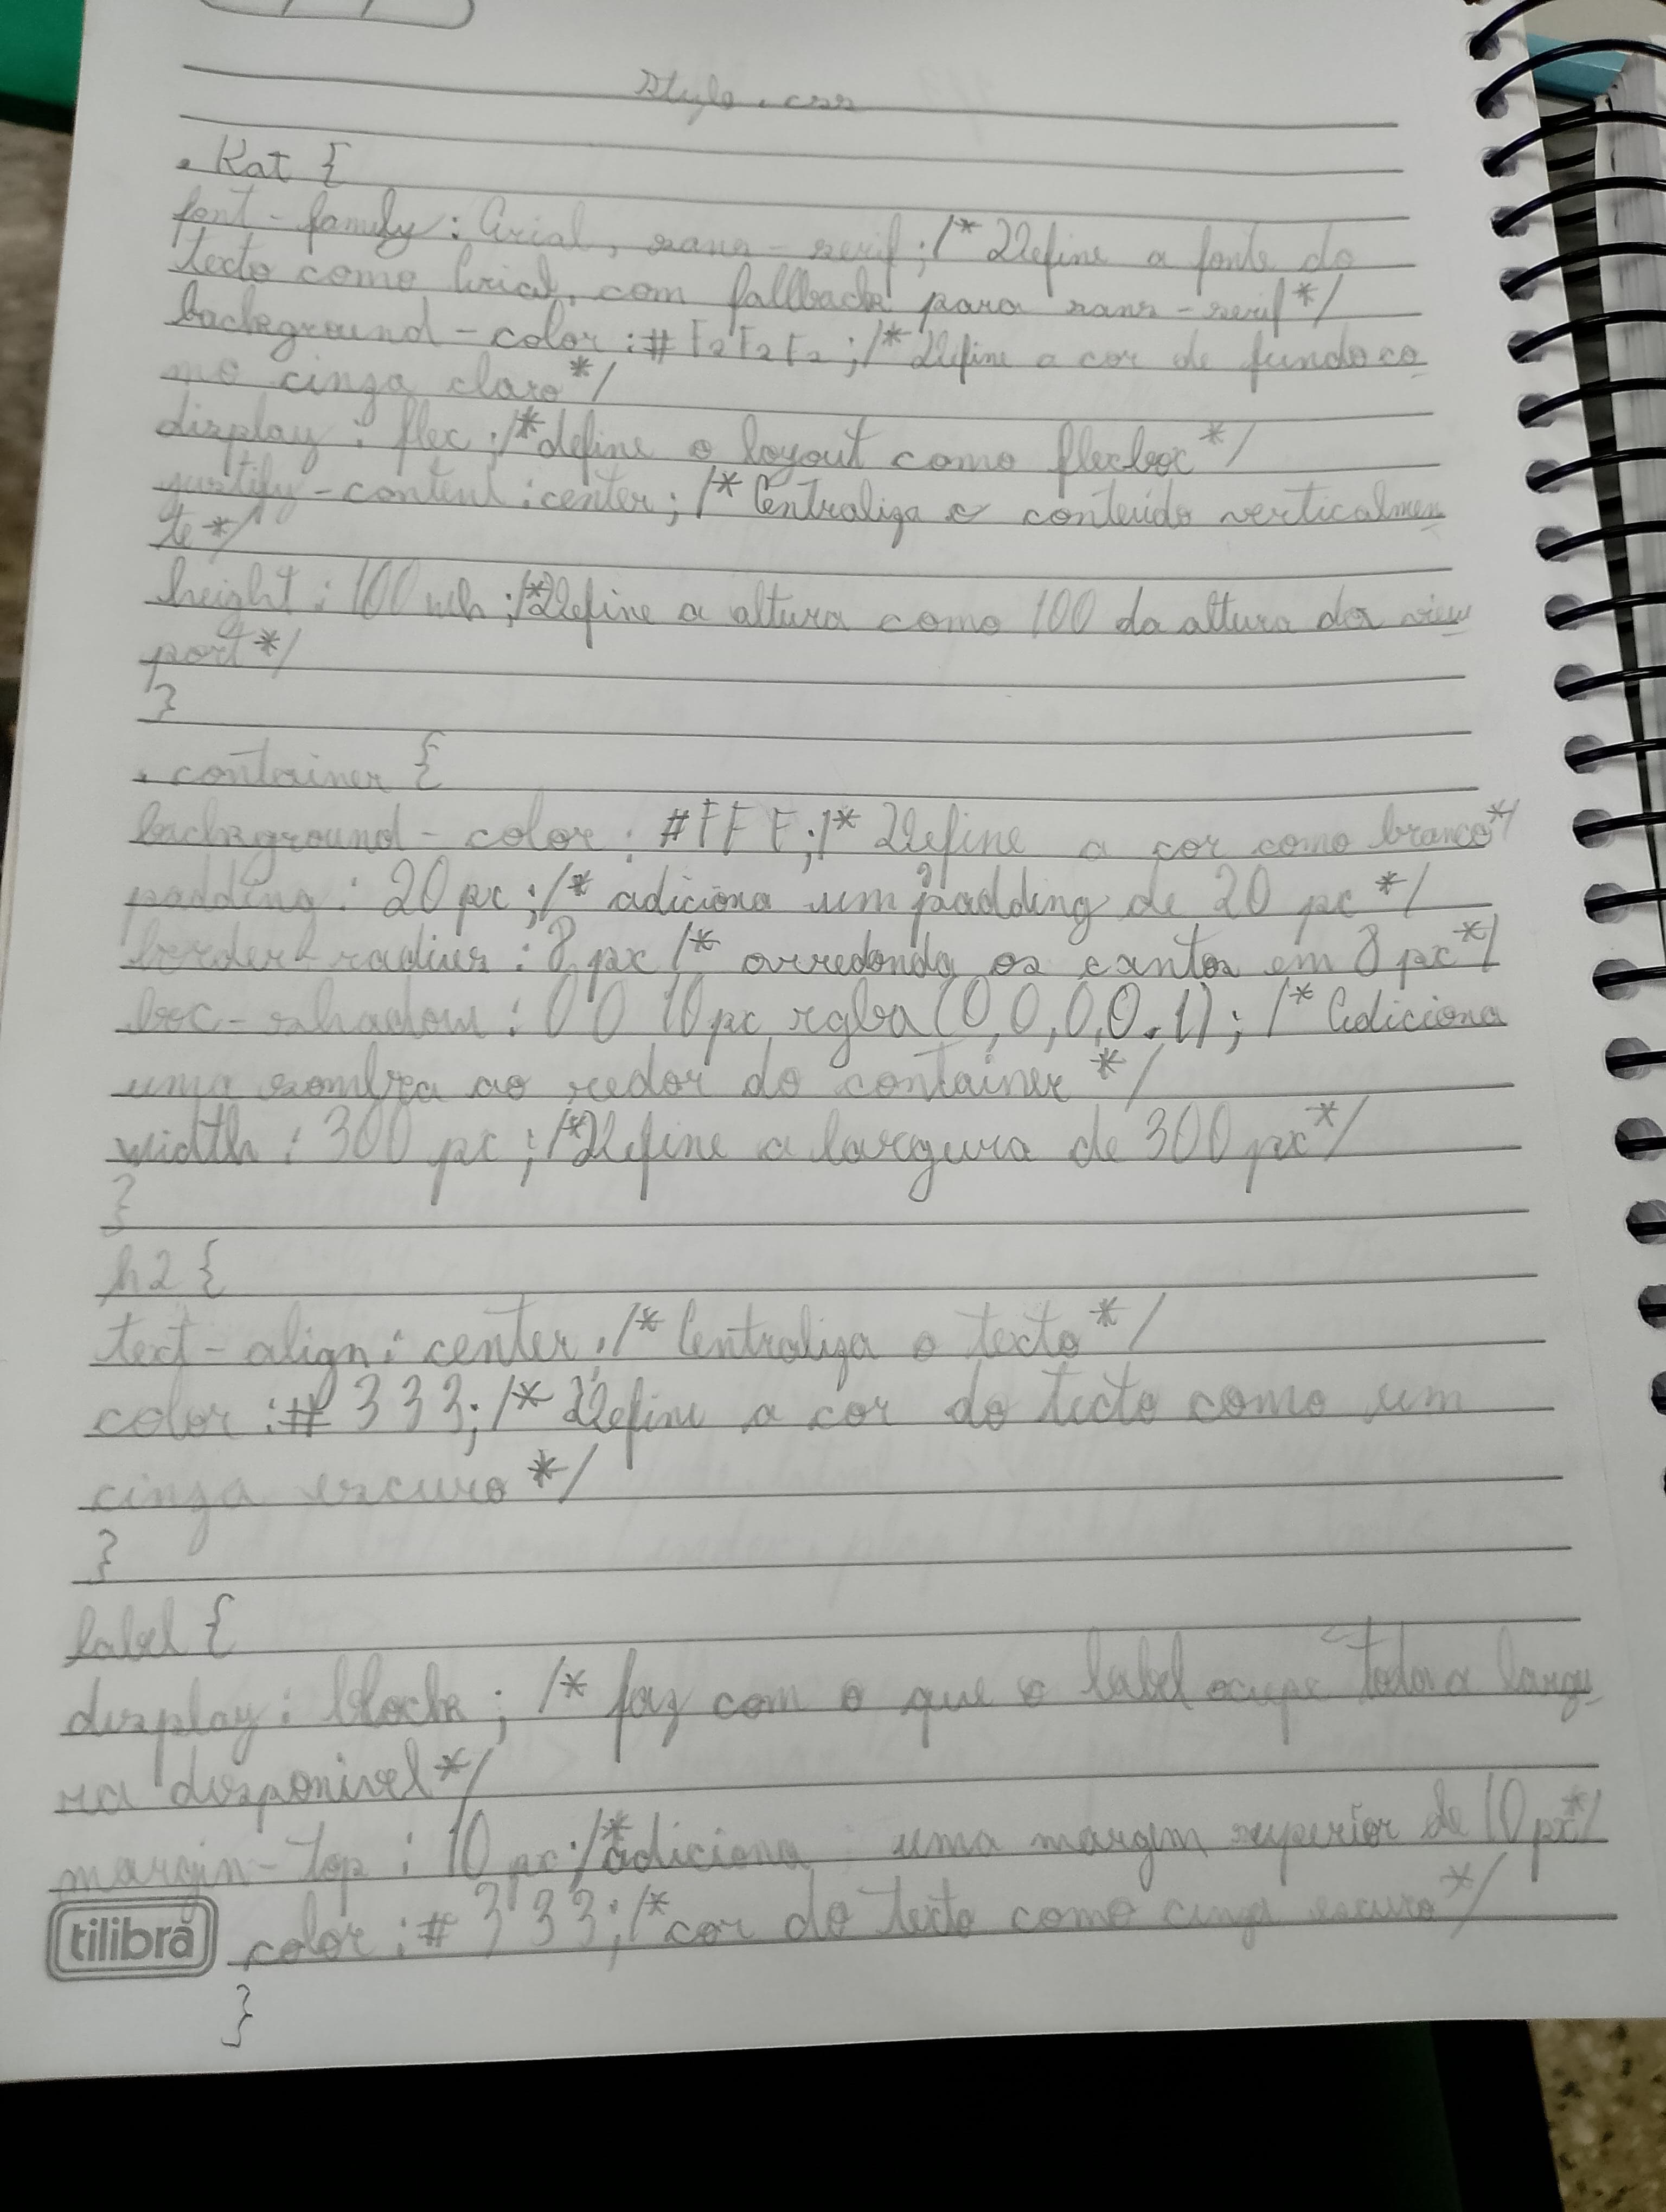 Style.css
.Kat {
font-family: Arial, sans-serif; /* Define a fonte do
texto como Arial, com fallback para sans-serif */
background-color: #F2F2F2; /* Define a cor de fundo co
mo cinza claro */
display: flex; /* define o layout como flexbox */
justify-content: center; /* Centraliza o conteúdo verticalmen
te */
height: 100 vh; /* Define a altura como 100 da altura da view
port */
}
.container {
background-color: #FFF; /* Define a cor como branco */
padding: 20px; /* adiciona um padding de 20 px */
border-radius: 8 px /* arredonda os cantos em 8 px */
box-shadow: 0 0 10px rgba (0,0,0,0.1); /* Adiciona
uma sombra ao redor do container */
width: 300 px; /* Define a largura de 300 px */
}
h2 {
text-align: center; /* Centraliza o texto */
color: # 333; /* Define a cor do texto como um
cinza escuro */
}
label {
display: block; /* faz com o que o label ocupe toda a largu
ra disponivel */
margin-top: 10 px; /* adiciona uma margem superior de 10 px */
color: # 333; /* cor do texto como cinza escuro */
}
tilibra